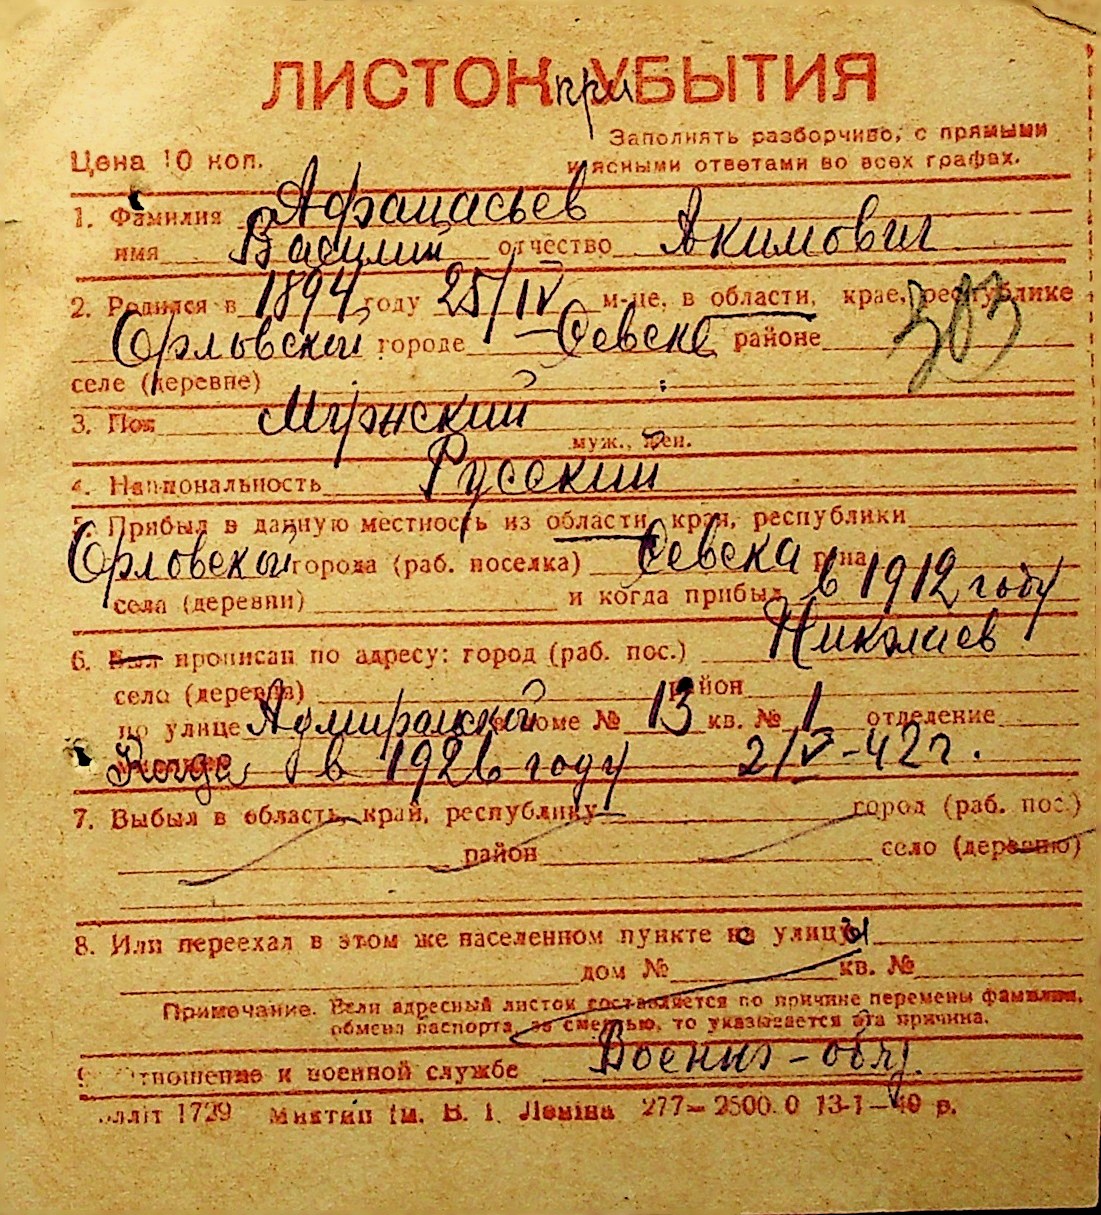 ЛИСТОК при УБЫТИЯ
Заполнять разборчиво, с прямыми
Цена 10 коп. и ясными ответами во всех графах.
1. Фамилия Афанасьев
имя Василий отчество Якимович
2. Родился в 1894 году 25/IV м-це, в области, крае, республике
303
Орловской городе – Севске районе
селе (деревне)
3. Пол Мужский
муж., жен.
4. Национальность Русский
5. Прибыл в данную местность из области, края, республики
Орловской города (раб. поселка) Севска р-на
села (деревни) и когда прибыл в 1912 году
6. Был прописан по адресу: город (раб. пос.) Николаев
село (деревня) район
по улице Адмиральской в доме № 13 кв. № 1 отделение
Когда в 1926 году 2/V-42 г.
7. Выбыл в область, край, республику город (раб. пос.)
район село (деревню)
8. Или переехал в этом же населенном пункте на улицу
дом № кв. №
Примечание. Если адресный листок составляется по причине перемены фамилии,
обмена паспорта, за смертью, то указывается эта причина.
9. Отношение к военной службе Военно-обяз.
1729 Миктип ім. В. І. Леніна 277–2500. 0 13-1–40 р.